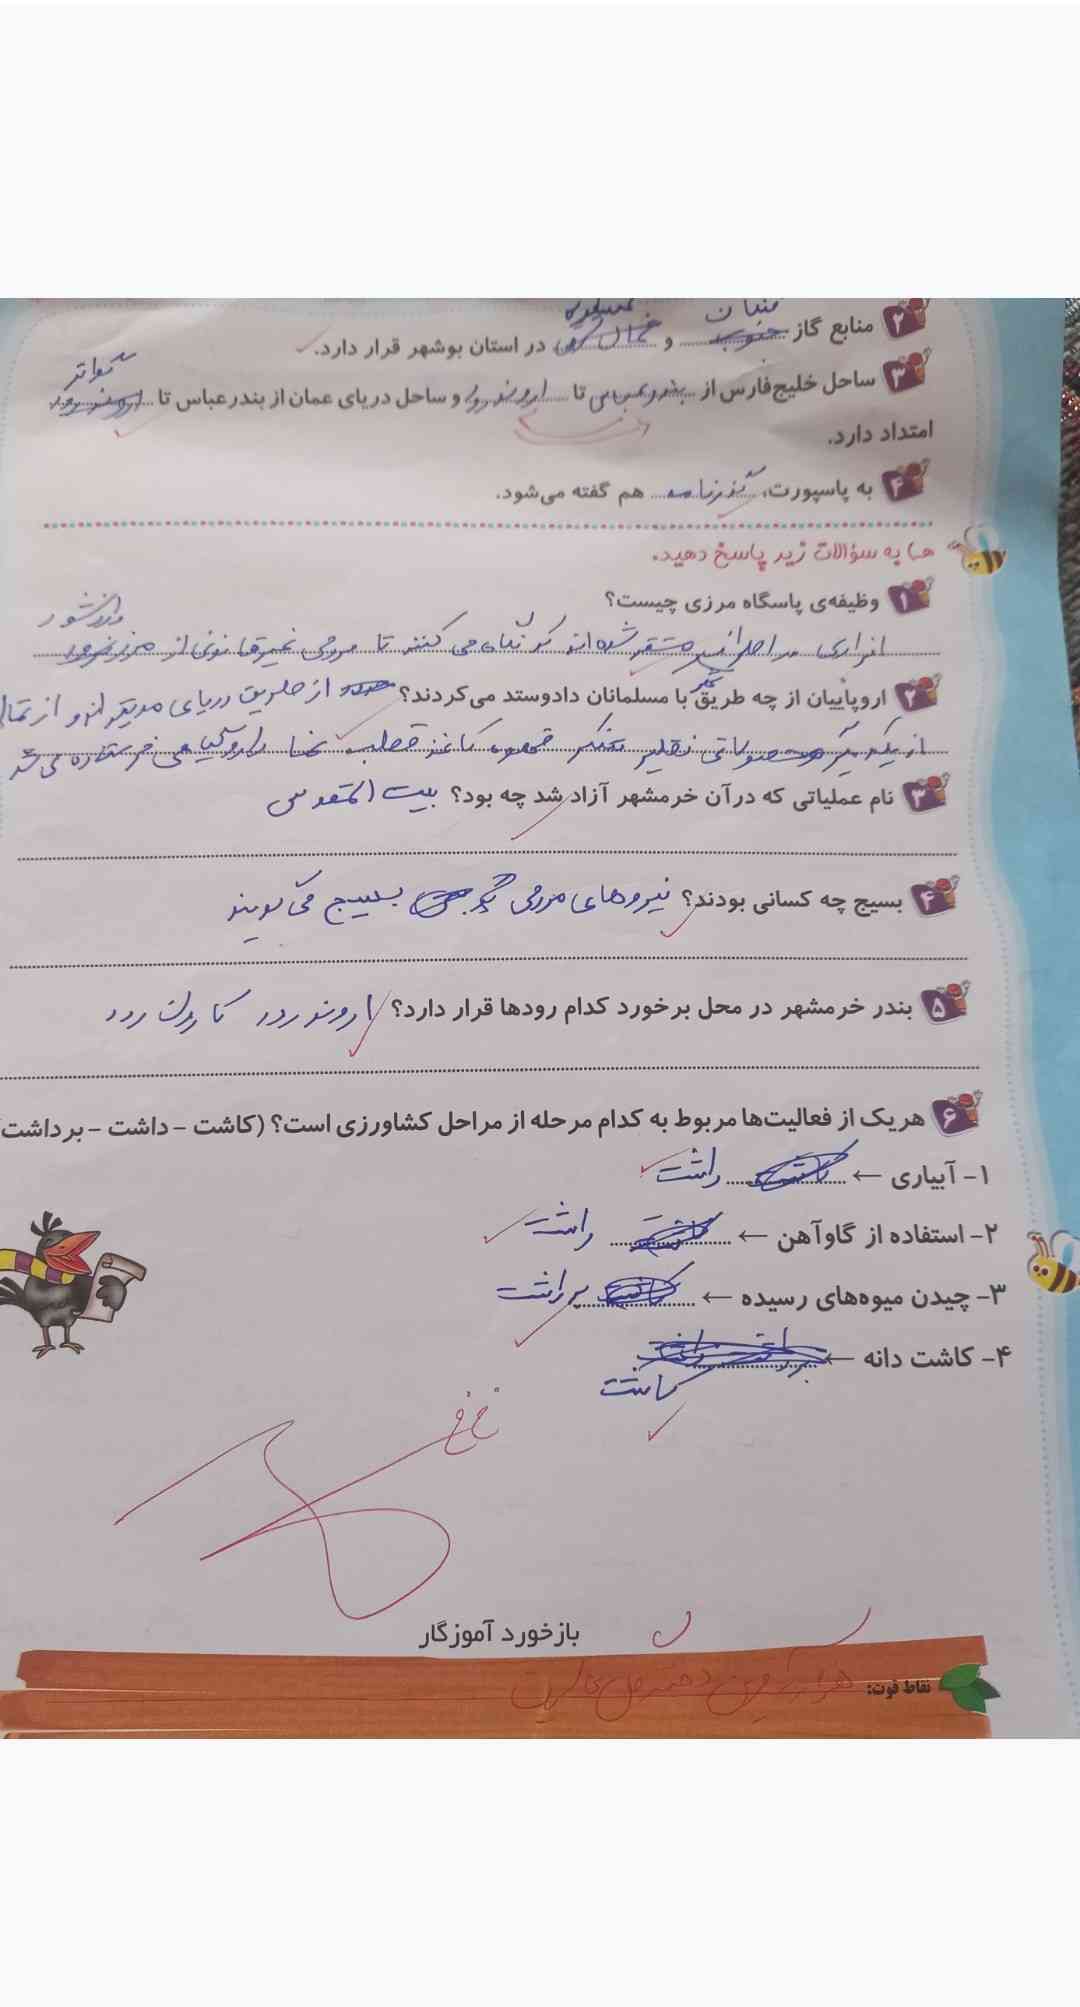 ۲ منابع گاز جنوب کنگان و شمال عسلویه در استان بوشهر قرار دارد.
۳ ساحل خلیج‌فارس از بندرعباس تا اروندرود و ساحل دریای عمان از بندرعباس تا گواتر
امتداد دارد.
۴ به پاسپورت، گذرنامه هم گفته می‌شود.
به سؤالات زیر پاسخ دهید.
۱ وظیفه‌ی پاسگاه مرزی چیست؟
افرادی در مستقر شده اند که نگاه می کنند تا مردمی غیرقانونی از مرز رد نشود
۲ اروپاییان از چه طریق با مسلمانان دادوستد می‌کردند؟ از طریق دریای مدیترانه و از
از یکدیگر نظیر شکر قهوه کاغذ قطب نما دارو می فرستاده می شد
۳ نام عملیاتی که درآن خرمشهر آزاد شد چه بود؟ بیت المقدس
۴ بسیج چه کسانی بودند؟ نیروهای مردمی بسیج می گویند
۵ بندر خرمشهر در محل برخورد کدام رودها قرار دارد؟ اروند رود کارون رود
۶ هریک از فعالیت‌ها مربوط به کدام مرحله از مراحل کشاورزی است؟ (کاشت - داشت - برداشت)
۱- آبیاری ← داشت
۲- استفاده از گاوآهن ← داشت
۳- چیدن میوه‌های رسیده ← برداشت
۴- کاشت دانه ← کاشت
بازخورد آموزگار
نقاط قوت: هزار آفرین دختر گل